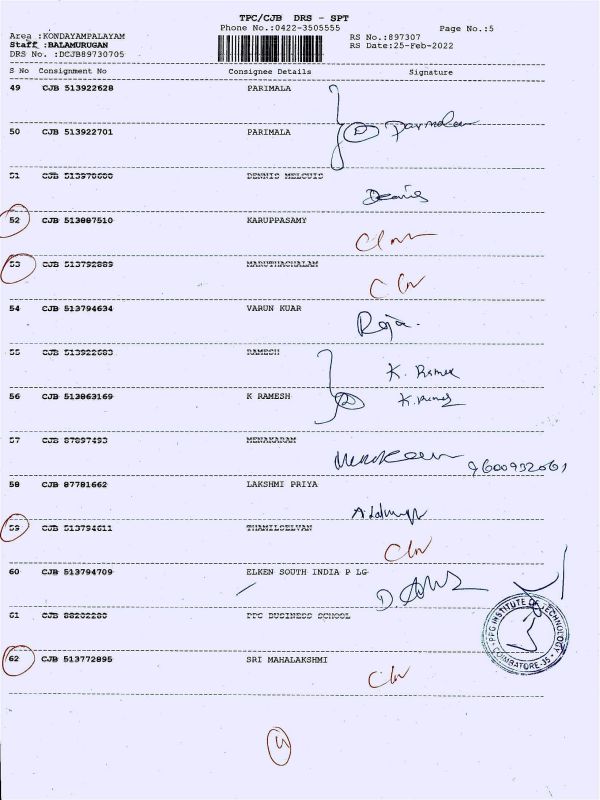 TPC/CJB DRS - SPT
Phone No.:0422-3505555 Page No.:5
Area :KONDAYAMPALAYAM RS No.:897307
Staff :BALAMURUGAN RS Date:25-Feb-2022
DRS No. :DCJB89730705
S No Consignment No Consignee Details Signature
49 CJB 513922628 PARIMALA
50 CJB 513922701 PARIMALA
51 CJB 513970600 DENNIS MELCUIS
52 CJB 513887510 KARUPPASAMY
53 CJB 513792889 MARUTHACHALAM
54 CJB 513794634 VARUN KUAR
Roja.
55 CJB 513922683 RAMESH
K. Ramex
56 CJB 513863169 K RAMESH
57 CJB 87897493 MENAKARAM
58 CJB 87781662 LAKSHMI PRIYA
59 CJB 513794611 THAMILSELVAN
60 CJB 513794709 ELKEN SOUTH INDIA P LG
61 CJB 88202280 PPG BUSINESS SCHOOL
PPG INSTITUTE OF TECHNOLOGY
COIMBATORE-35
62 CJB 513772895 SRI MAHALAKSHMI
4